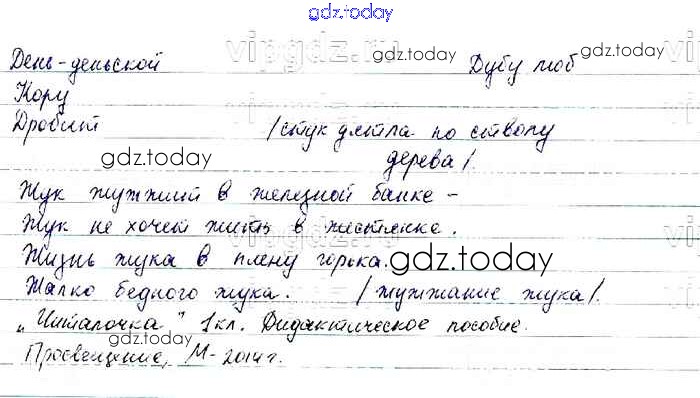 gdz.today
vipgdz.ru
gdz.today
gdz.today
День-деньской Дубу лоб
Кору
Дробит /стук дятла по стволу
дерева/.
gdz.today
gdz.today
Жук жужжит в железной банке –
Жук не хочет жить в жестянке.
Жизнь жука в плену горька.
gdz.today
Жалко бедного жука. /жужжание жука/.
„Читалочка" 1кл. Дидактическое пособие.
Просвещение, М-2014г.
gdz.today
gdz.today